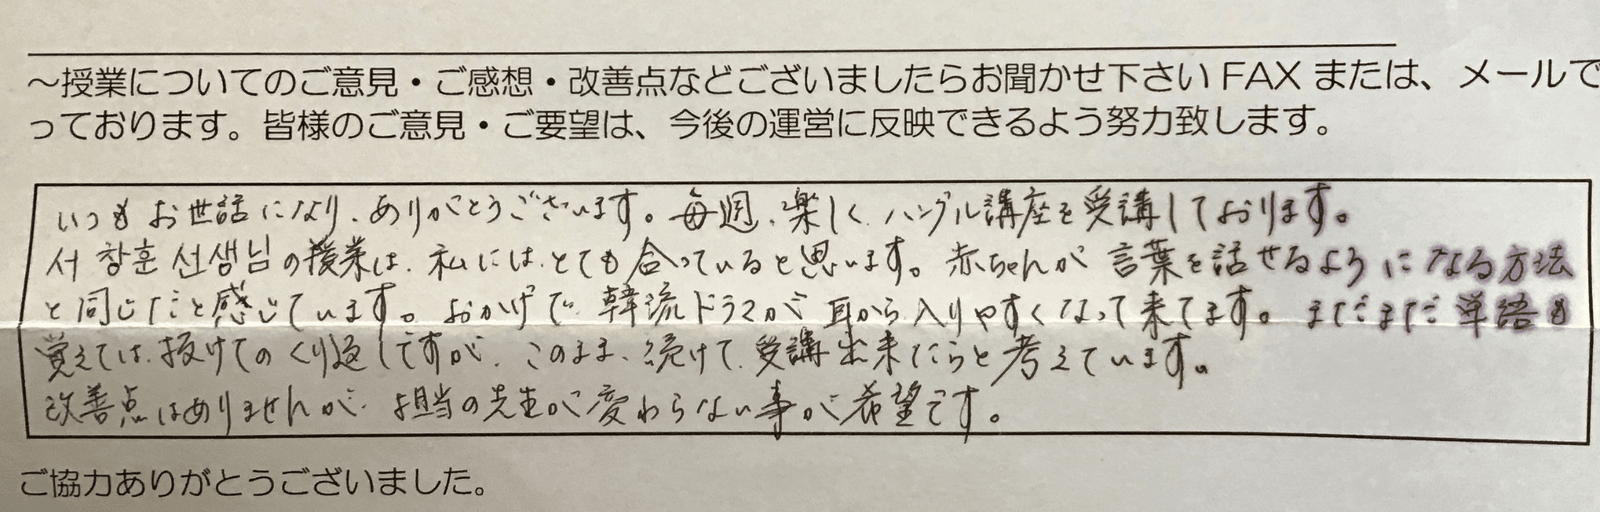 ～授業についてのご意見・ご感想・改善点などございましたらお聞かせ下さい FAX または、メールで
っております。皆様のご意見・ご要望は、今後の運営に反映できるよう努力致します。
いつも お世話になり、ありがとうございます。毎週、楽しく ハングル講座を受講しております。
서 창훈 선생님の授業は、私には、とても合っていると思います。赤ちゃんが 言葉を話せるように なる方法
と同じだと感じています。おかげで、韓流ドラマが耳から入りやすくなって来てます。まだまだ 単語も
覚えては、抜けてのくり返しですが、このまま、続けて、受講出来たらと考えています。
改善点はありませんが、担当の先生が変わらない事が希望です。
ご協力ありがとうございました。